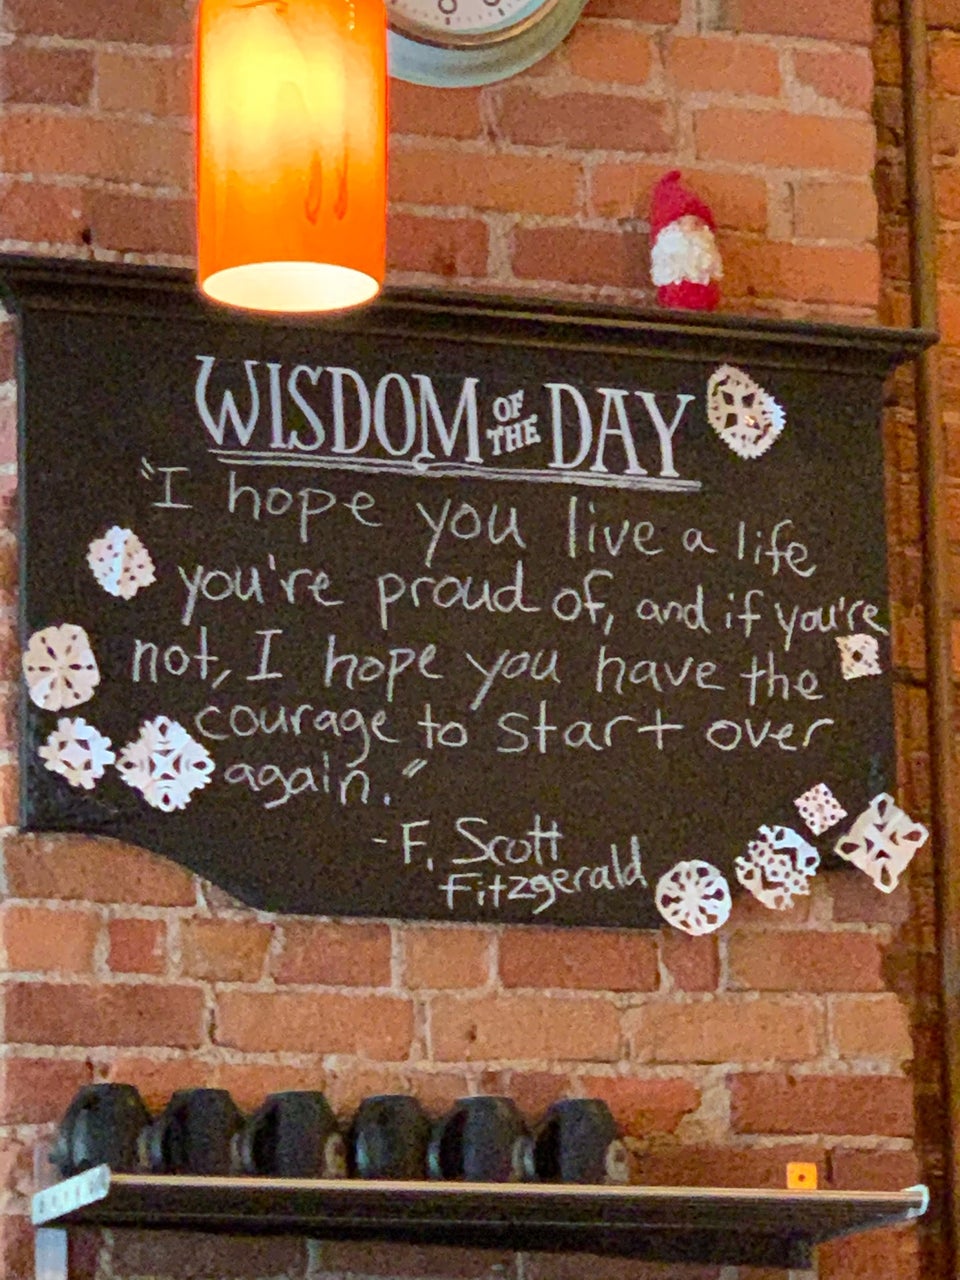 WISDOM OF THE DAY
"I hope you live a life
you're proud of, and if you're
not, I hope you have the
courage to start over
again."
-F. Scott
Fitzgerald